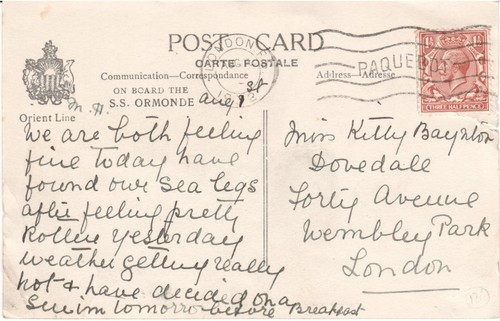 POST CARD
CARTE POSTALE
Communication—Correspondence
ON BOARD THE
S.S. ORMONDE
Address—Adresse
Orient Line
LONDON
PAQUEBOT
THREE HALF PENCE
Aug
We are both feeling
fine today have
found our sea legs
after feeling pretty
rotten yesterday
weather getting really
hot & have decided on a
swim tomorrow before Breakfast
Miss Kitty Baynton
Dovedale
Forty Avenue
Wembley Park
London